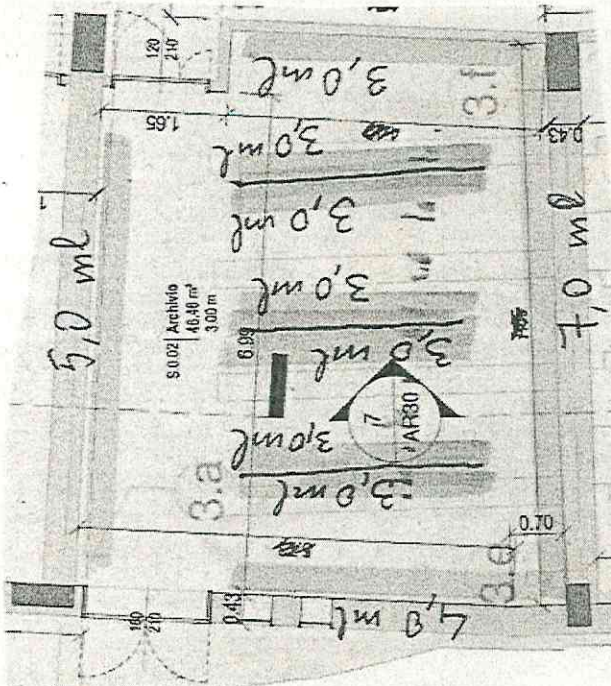 120
210
3,0 ml
3.f
1.65
3,0 ml
0.43
1
3,0 ml
5,0 ml
S.0.02 | Archivio
46.46 m²
3.00 m
3,0 ml
7,0 ml
6.99
3,0 ml
7
AR30
3,0 ml
3.a
3,0 ml
0.70
3.e
0.43
160
210
4,0 ml